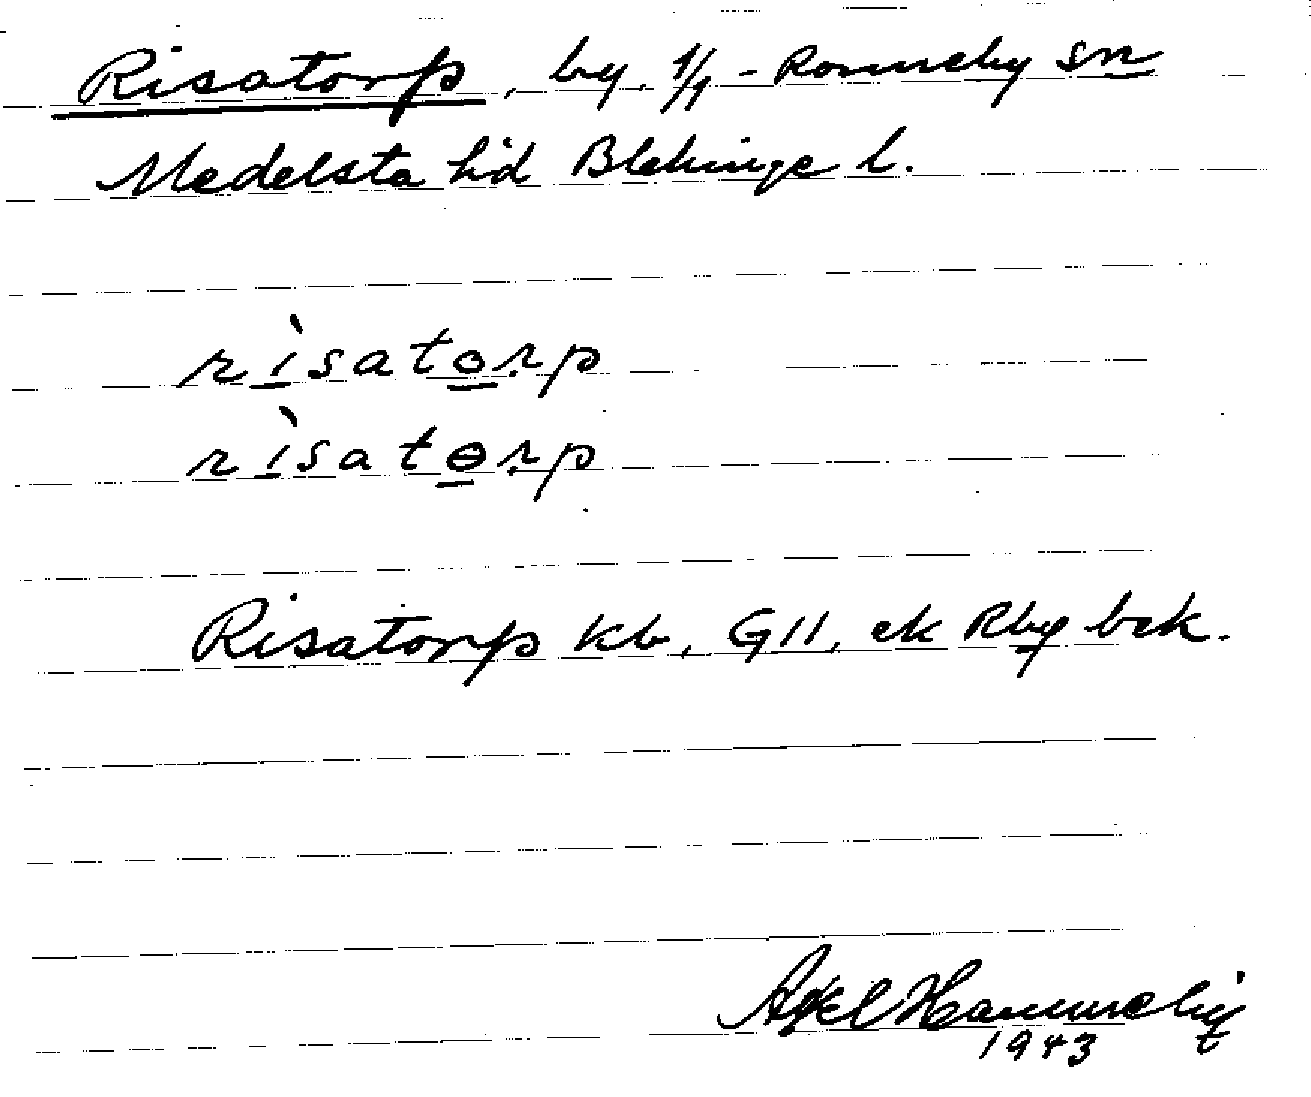 Risatorp, by, 1/1 - Ronneby sn
Medelsta hd Blekinge l.
rìsatorp
rìsatɵrp
Risatorp kb, GII, ek Rby bek.
1943